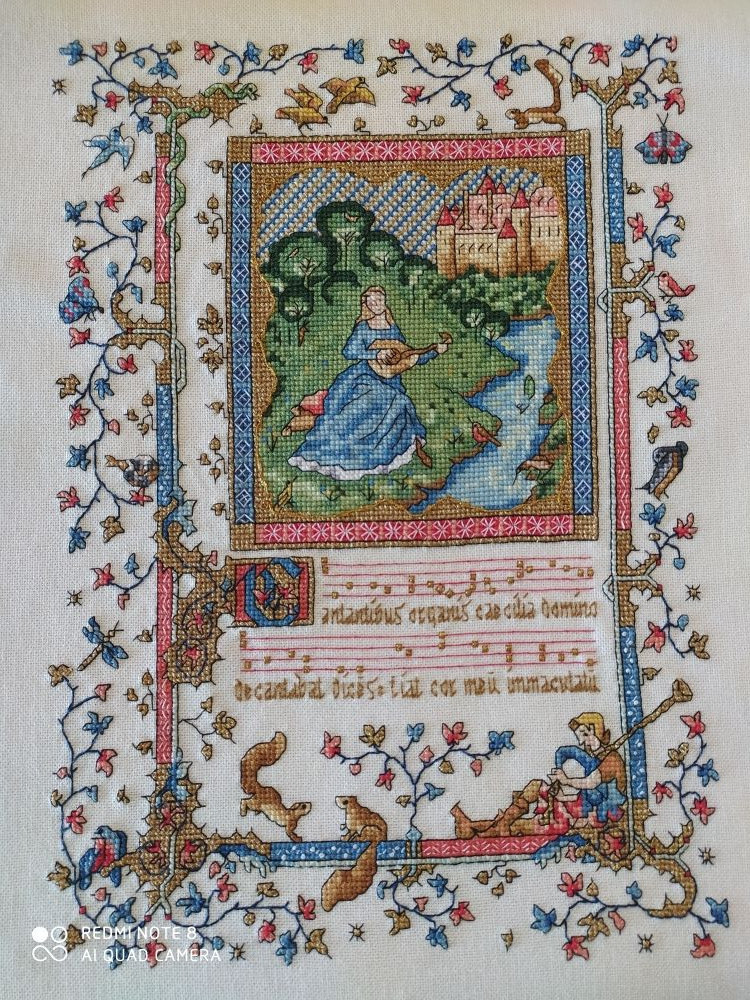 Cantantibus organis caecilia domino
decantabat dicēs: fiat cor meū immaculatū
REDMI NOTE 8
AI QUAD CAMERA